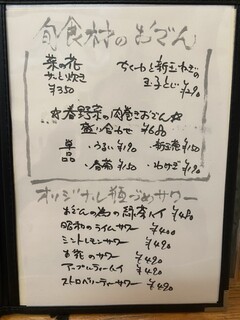 旬食材のおでん
菜の花
さっと炊き
¥350
ちくわと新玉ねぎの
玉子とじ
¥290
☆春野菜の肉巻きおでん☆
盛り合わせ ¥680
単品
うるい ¥190
新玉ねぎ ¥150
春菊 ¥150
わけぎ ¥190
オリジナル瓶づめサワー
おでんの為の緑茶ハイ ¥490
昭和のライムサワー ¥490
ミントレモンサワー ¥490
お花のサワー ¥490
アップルティーハイ ¥490
ストロベリーティーサワー ¥490